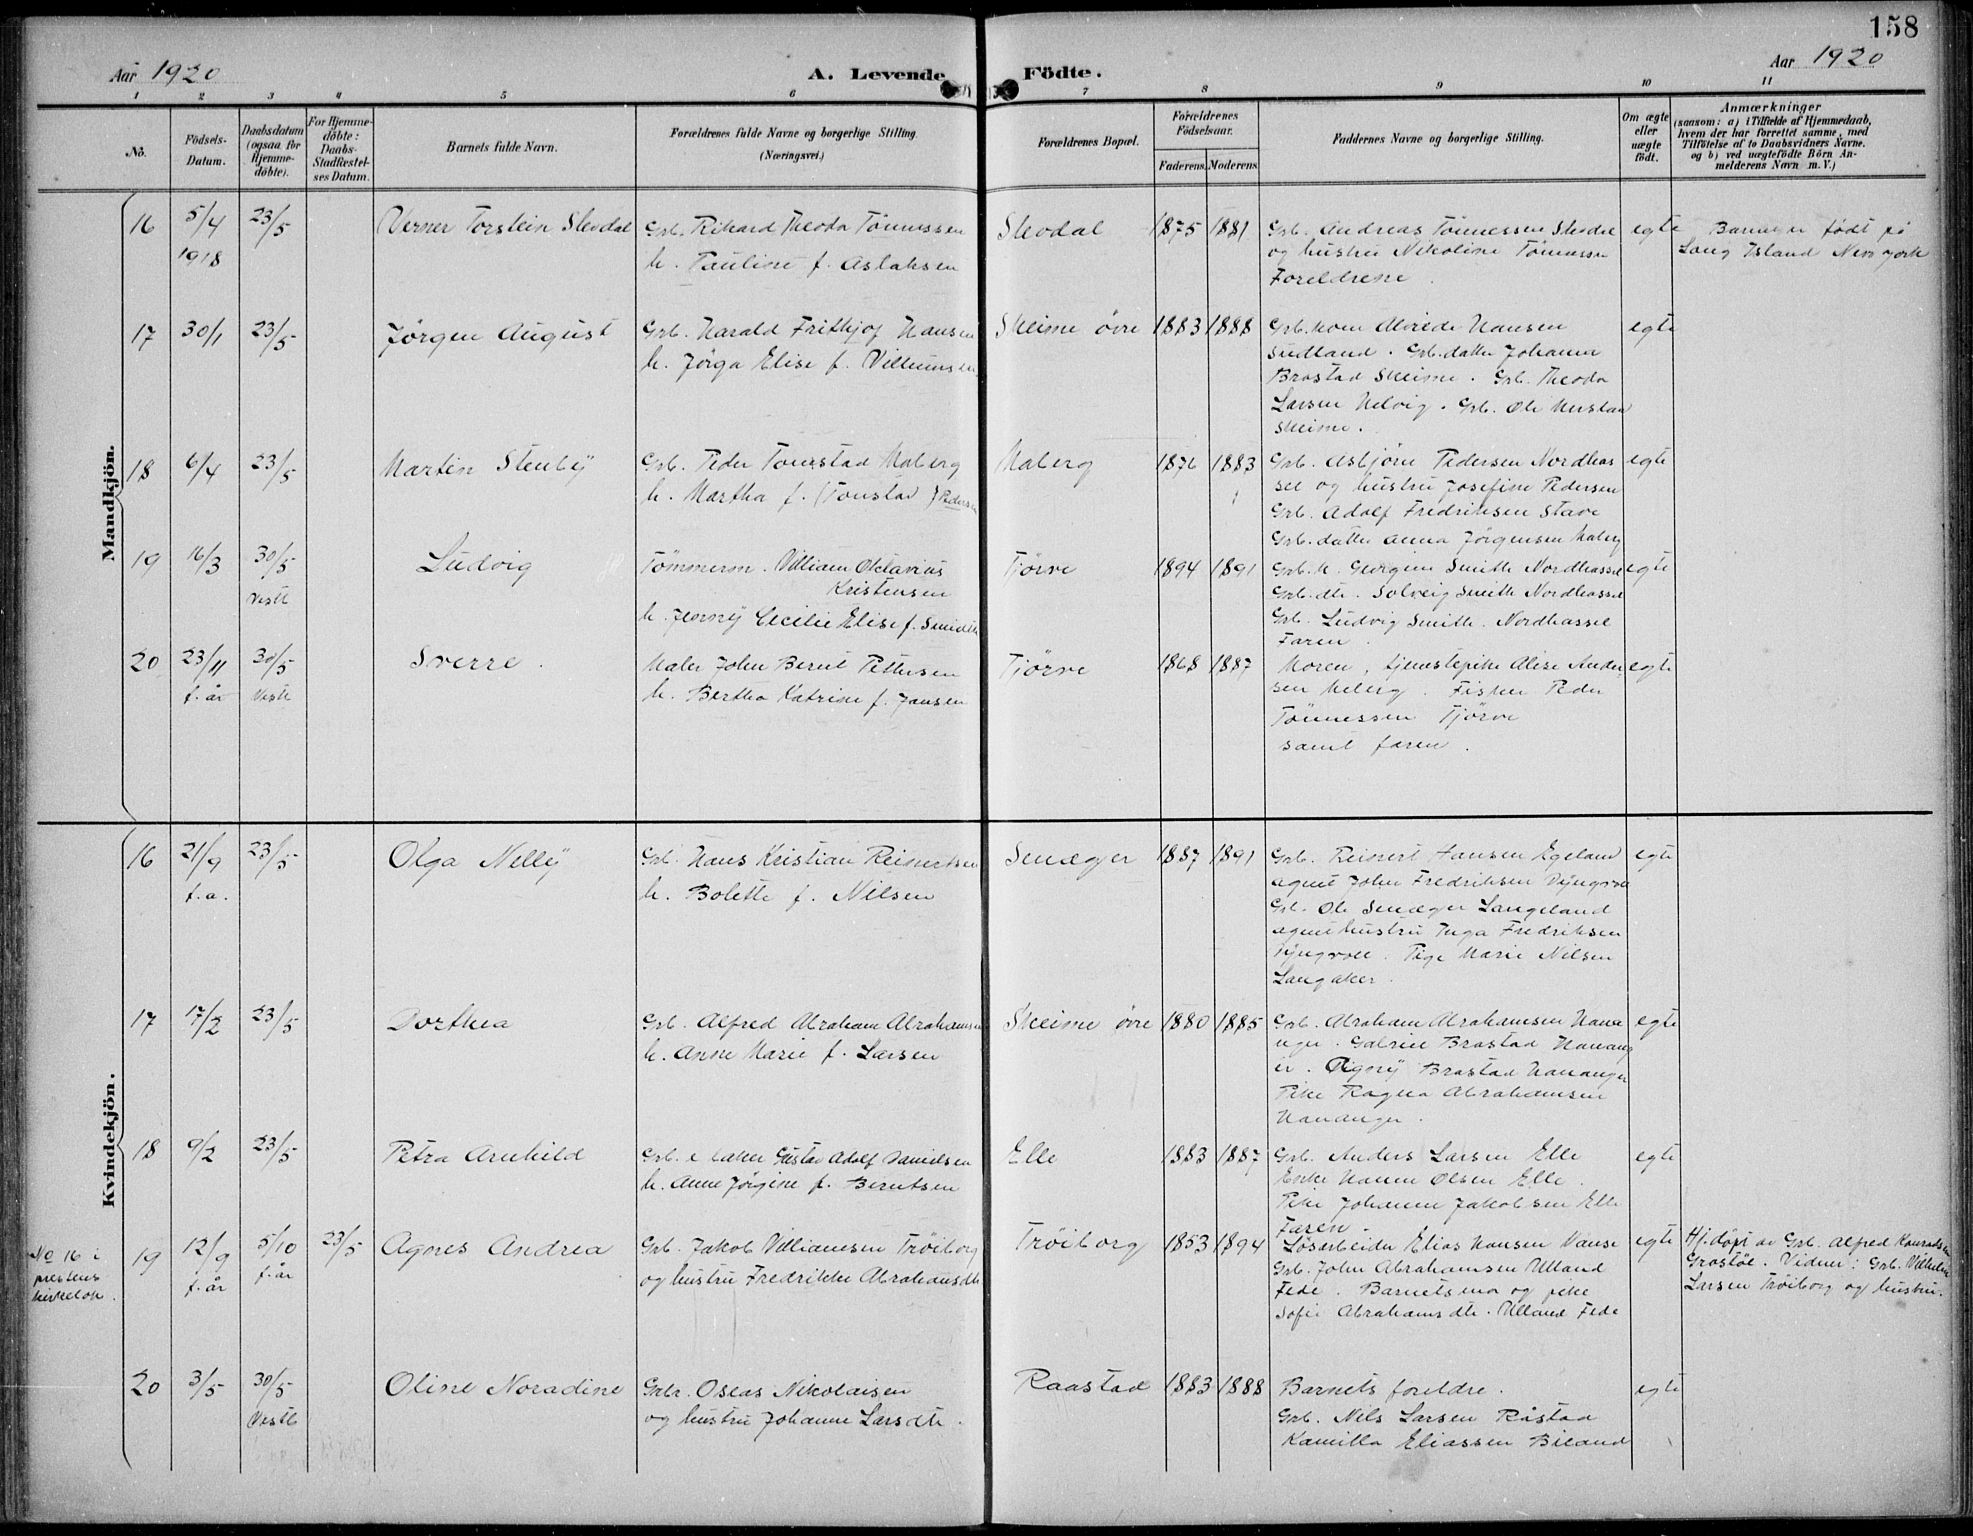 158
Aar 1920
A. Levende Födte.
Aar 1920
1 2 3 4 5 6 7 8 9 10 11
No.
Födsels-Datum.
Daabsdatum (ogsaa for Hjemme-döbte).
For Hjemme-döbte: Daabs-Stadfæstel-ses Datum.
Barnets fulde Navn.
Forældrenes fulde Navne og borgerlige Stilling.
(Næringsvei.)
Forældrenes Bopæl.
Forældrenes Födselsaar.
Faderens. Moderens.
Faddernes Navne og borgerlige Stilling.
Om ægte eller uægte födt.
Anmærkninger
(saasom: a) i Tilfælde af Hjemmedaab,
hvem der har forrettet samme, med
Tilföielse af to Daabsvidners Navne.
og b) ved uægtefödte Börn An-
melderens Navn m. V.)
Mandkjön.
16 5/4 1918 23/5 Verner Torstein Slevdal
Grb. Rikard Theodor Tönnessen
h. Pauline f. Aslaksen
Slevdal 1875 1881
Grb. Andreas Tönnessen Slevdal
og hustru Nikoline Tönnessen
Foreldrene.
egte
Barnet er födt på
Long Island New York
17 30/1 23/5 Jörgen August
Grb. Harald Frithjof Hansen
h. Jörga Elise f. Villumsen
Skeime övre 1883 1888
Hansen
Sudland. Grb. datter Johanna
Brastad Skeime. Grb. Theodor
Larsen Helvig. Grb. Ole
Skeime.
egte
18 6/4 23/5 Martin Stenby
Grb. Peder Tonstad Maberg
h. Martha f. (Tonstad) Pedersen
Maberg 1876 1883
Grb. Asbjörn Pedersen Nordhas
sel og hustru Josefine Pedersen
Grb. Adolf Fredriksen Stave
Grb. datter Anna Jörgensen Maberg
egte
19 16/3 30/5 Vestb Ludvig
Tömmerm. Villiam Oktavius
Kristensen
h. Jenny Cecilie Elise f. Smidth
Tjörve 1894 1891
Grb. h. Georgine Smith Nordhassel
Grb. dtr. Solveig Smith Nordhassel
Grb. Ludvig Smith. Nordhassel
Faren.
egte
20 23/11 f. år 30/5 Vestb Sverre.
Maler John Bernt Pettersen
h. Bertha Katrine f. Jansen
Tjörve 1868 1887
Moren, tjenestepike Alise Ander-
sen Meberg. Fisker Peder
Tönnessen Tjörve
samt faren.
egte
Kvindekjön.
16 21/9 f.a. 23/5 Olga Nelly
Grb. Hans Kristian Reinertsen
h. Bolette f. Nilsen
Snæger 1887 1891
Grb. Reinert Hansen Egeland
agent John Fredriksen Dyngvoll
Grb. Ole Snæger Langeland
agent hustru Inga Fredriksen
Dyngvoll. Pige Marie Nilsen
Langaker.
egte
17 17/2 23/5 Dorthea
Grb. Alfred Abraham Abrahamsen
h. Anne Marie f. Larsen
Skeime övre 1880 1885
Grb. Abraham Abrahamsen Hana
nger. Gabriel Brastad Hanang
er. Signy Brastad Hananger
Pike Ragna Abrahamsen
Hananger.
egte
18 9/2 23/5 Petra Arnhild
Grb. Gustav Adolf Danielsen
h. Anne Jörgine f. Berntsen
Elle 1883 1887
Grb. Anders Larsen Elle
Enke Hanne Olsen Elle.
Pike Johanne Jakobsen Elle
Faren.
egte
No 16 i
prestens
kirkebok.
19 12/9 f. år 5/10 f. år 23/5 Agnes Andrea
Grb. Jakob Villiamsen Tröiborg
og hustru Fredrikke Abrahamsdtr
Tröiborg 1853 1894
Lösarbeider Elias Hansen Vanse
Grb. John Abrahamsen Ulland
Fede. Barnets mor og pike
Sofie Abrahamsdtr. Ulland Fede
egte
Hj. döpt av Grb. Alfred Konradsen
Grostöl. Vidner: Grb. Vilhelm
Larsen Tröiborg og hustru.
20 3/5 30/5 Vestb Oline Noradine
Grbr. Oseas Nikolaisen
og hustru Johanne Larsdtr.
Raastad 1883 1888
Barnets foreldre.
Grb. Nils Larsen Råstad
Kamilla Eliassen Biland
egte